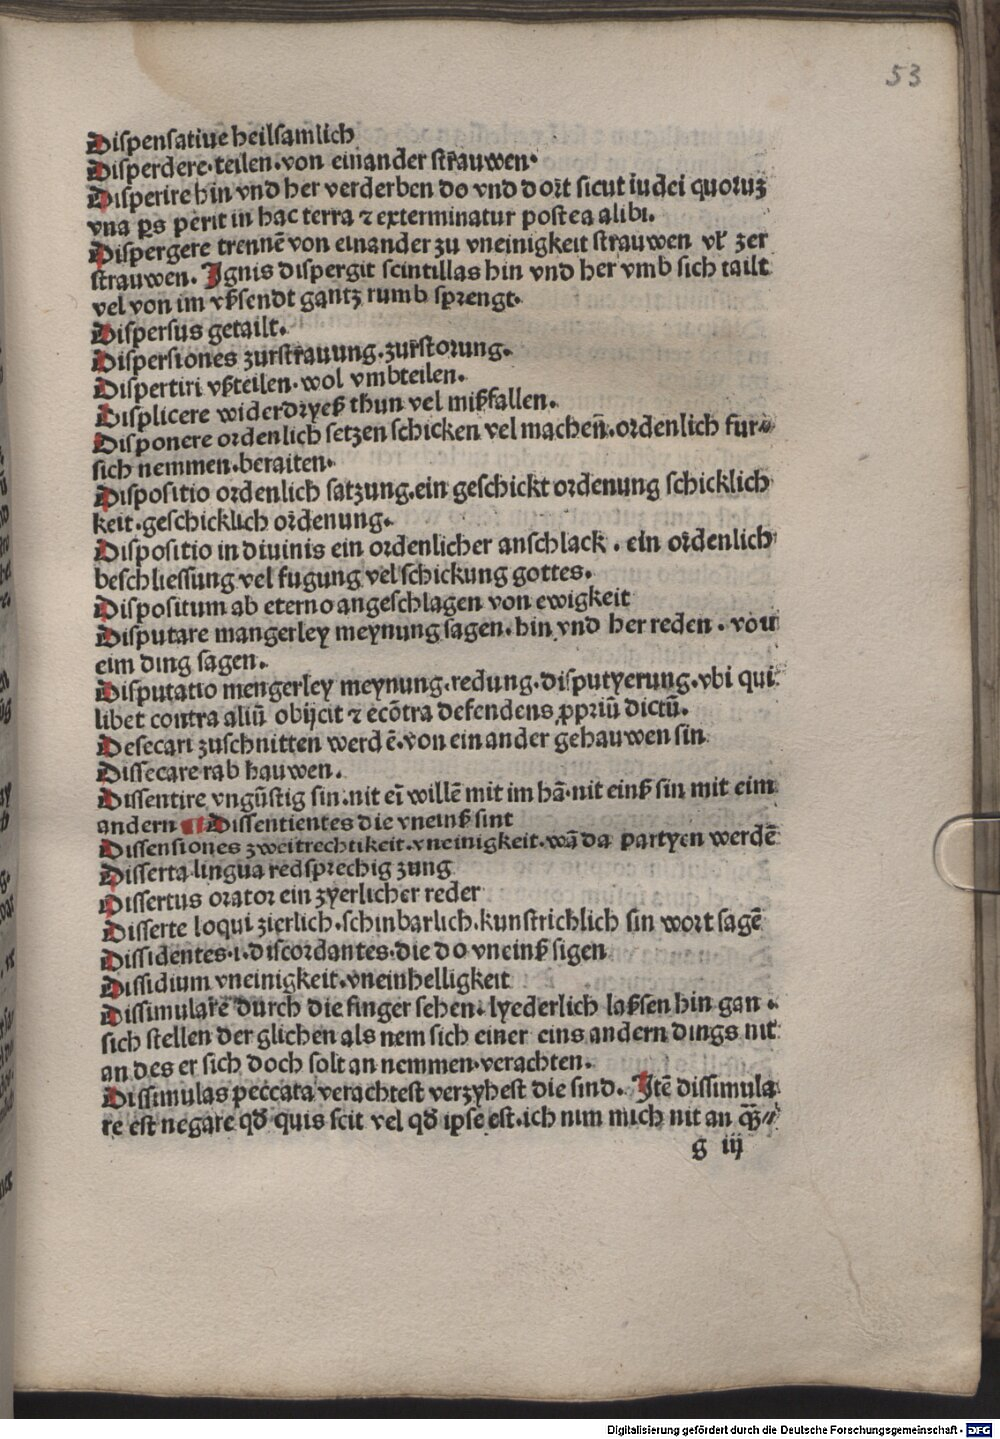 53
Dispensatiue heilsamlich
Disperdere·teilen·von einander strauwen·
Disperire hin vnd her verderben do vnd dort sicut iudei quoruꝫ
vna ps perit in hac terra ⁊ exterminatur postea alibi.
Dispergere trennē von einander zu vneinigkeit strauwen vł zer
strauwen. Ignis dispergit scintillas hin vnd her vmb sich tailt
vel von im vßsendt gantz rumb sprengt·
Dispersus getailt.
Dispersiones zurstrauung.zurstorung.
Dispertiri vßteilen·wol vmbteilen.
Displicere widerdryeß thun vel mißfallen.
Disponere ordenlich setzen schicken vel machen̄.ordenlich fur⸗
sich nemmen·beraiten·
Dispositio ordenlich satzung.ein geschickt ordenung schicklich
keit·geschicklich ordenung·
Dispositio in diuinis ein ordenlicher anschlack . ein ordenlich
beschliessung vel fugung vel schickung gottes.
Dispositum ab eterno angeschlagen von ewigkeit
Disputare mangerley meynung sagen·hin vnd her reden . vou
eim ding sagen.
Disputatio mengerley meynung·redung·disputyerung·vbi qui
libet contra aliū obijcit ⁊ ecōtra defendens ꝓpriū dictū.
Desecari zuschnitten werdē·von ein ander gehauwen sin
Dissecare rab hauwen.
Dissentire vngūstig sin·nit eī willē mit im hā·nit einß sin mit eim
andern Dissentientes die vneinß sint
Dissensiones zweitrechtikeit·vneinigkeit·wā da partyen werdē
Disserta lingua redsprechig zung
Dissertus orator ein zyerlicher reder
Disserte loqui zierlich·schinbarlich·kunstrichlich sin wort sagē
Dissidentes·i·discordantes·die do vneinß sigen
Dissidium vneinigkeit·vneinhelligkeit
Dissimulare durch die finger sehen·lyederlich laßsen hin gan .
sich stellen der glichen als nem sich einer eins andern dings nit
an des er sich doch solt an nemmen·verachten.
Dissimulas peccata verachtest verzyhest die sind. Itē dissimula
re est negare qđ quis scit vel qđ ipse est.ich nim mich nit an qꝫ̄⸗
g iij
Digitalisierung gefördert durch die Deutsche Forschungsgemeinschaft - DFG